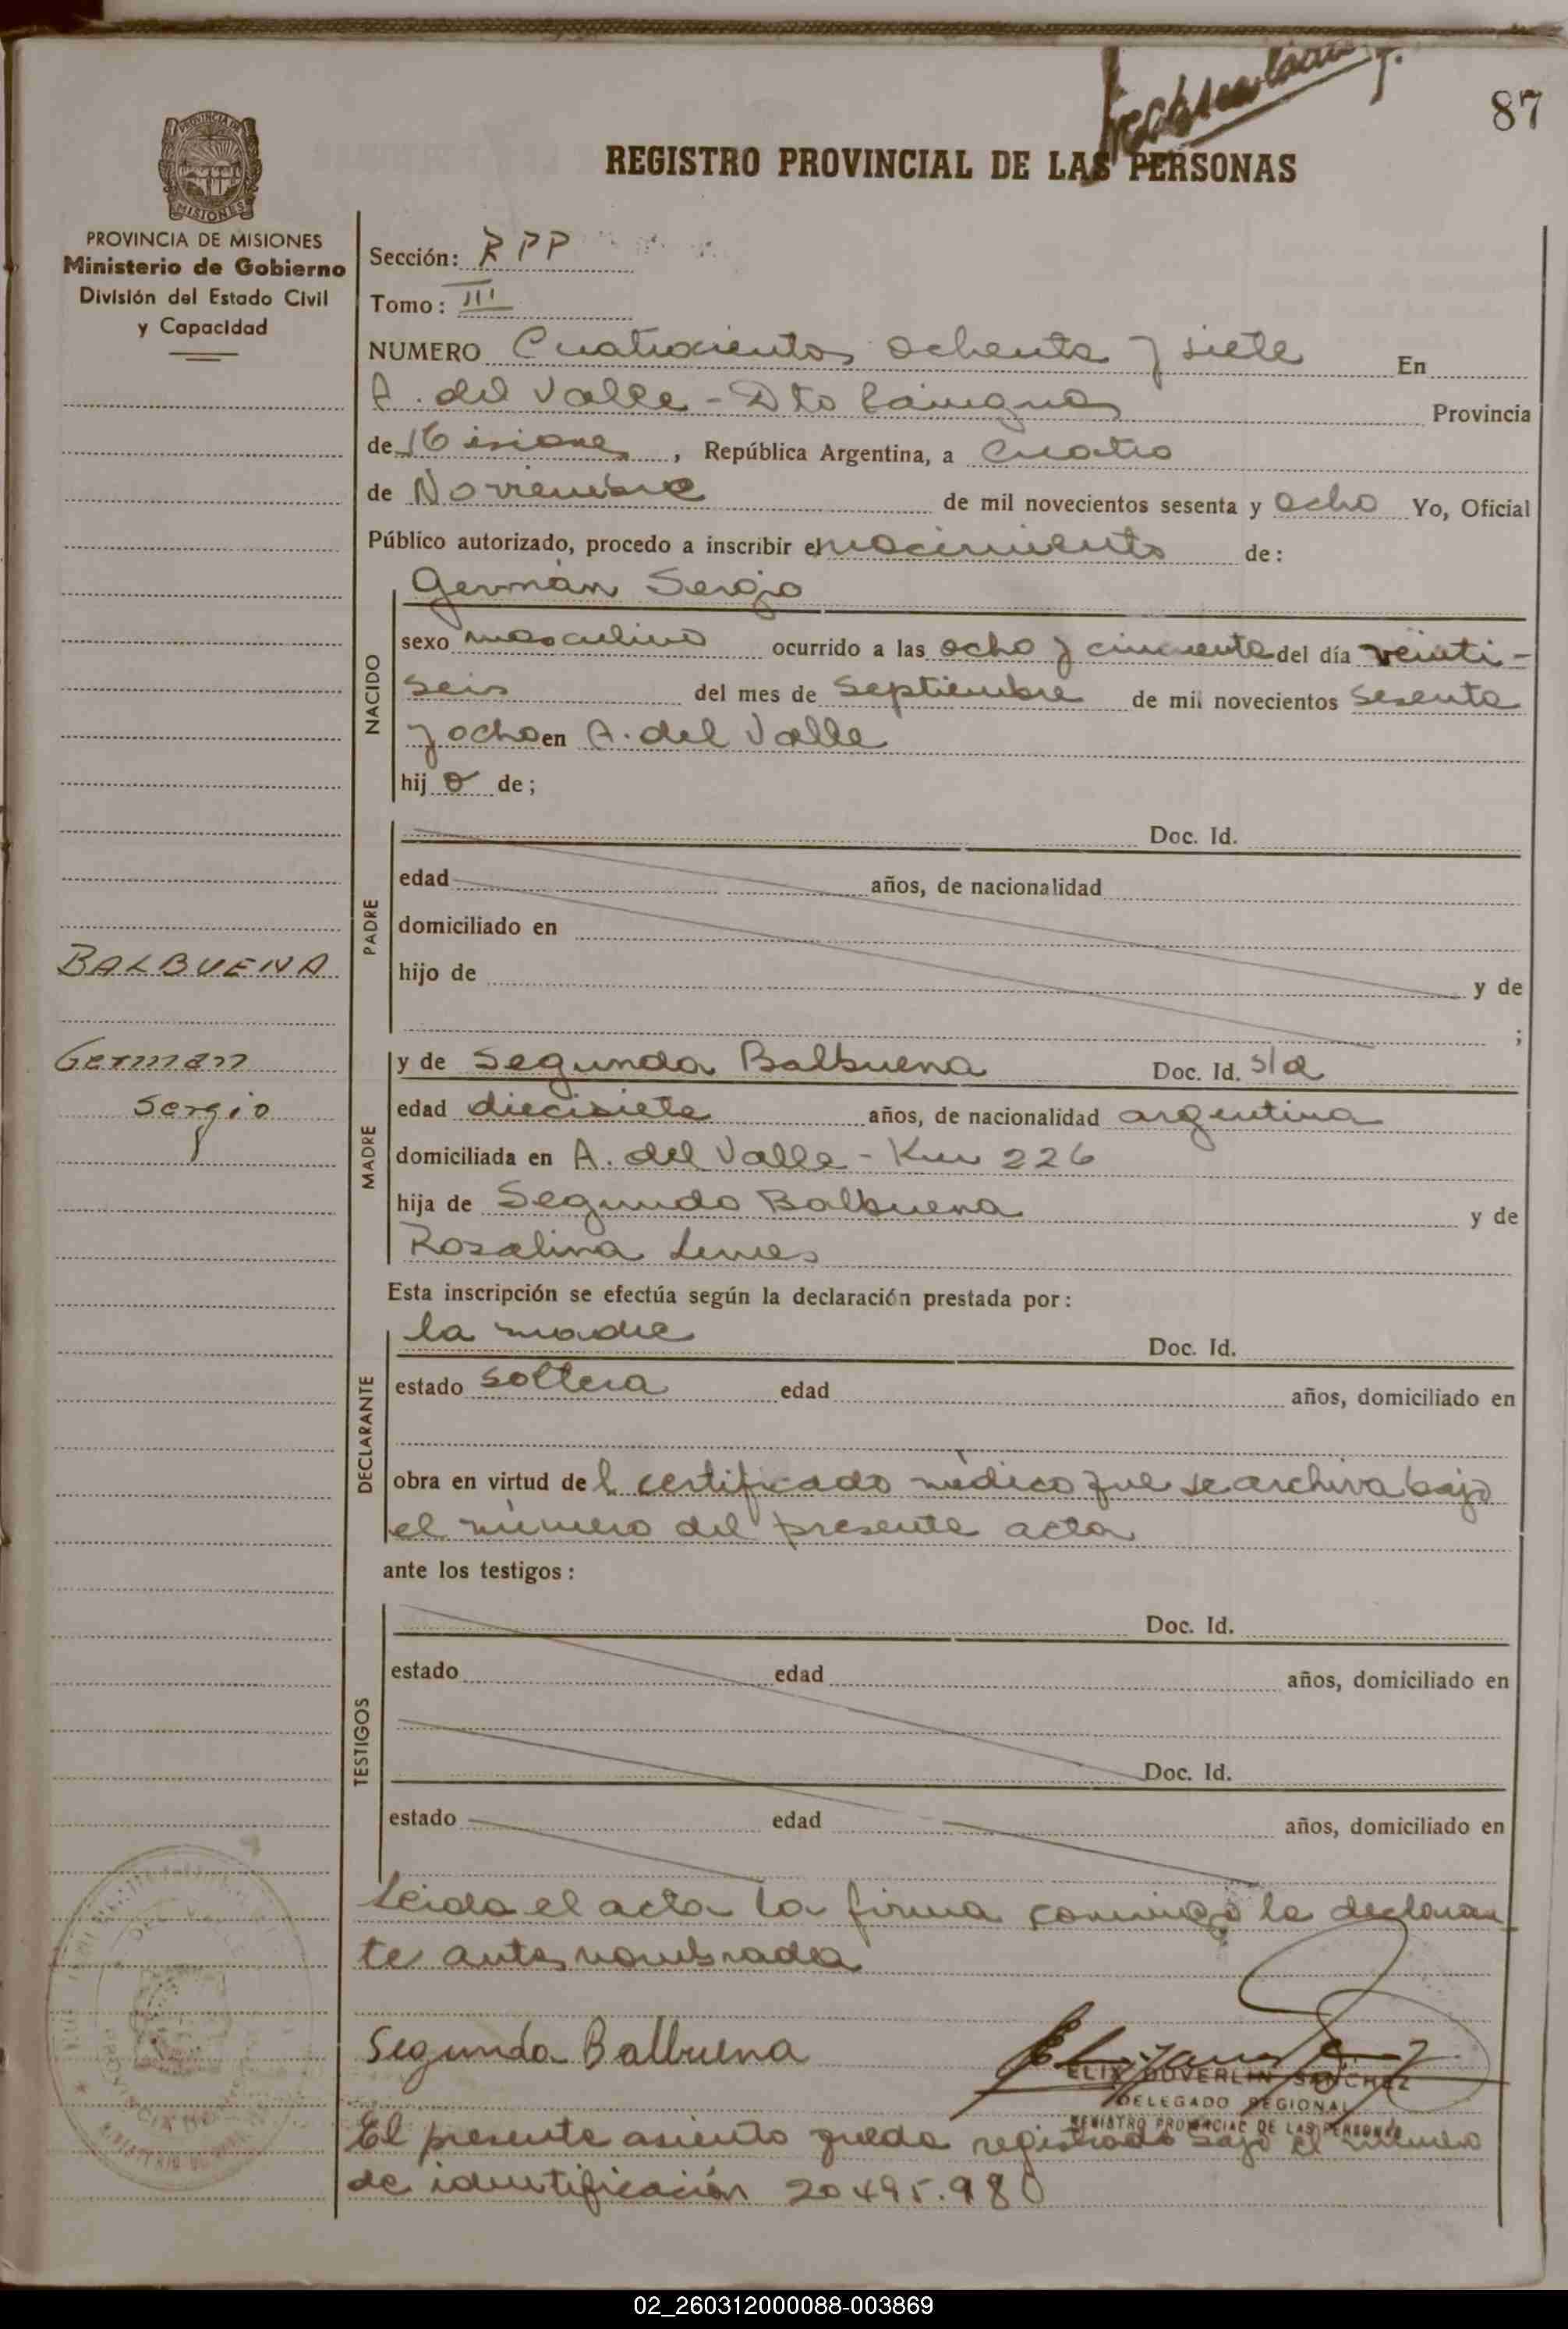 87
REGISTRO PROVINCIAL DE LAS PERSONAS
PROVINCIA DE MISIONES
MISIONES
PROVINCIA DE MISIONES
Ministerio de Gobierno
División del Estado Civil
y Capacidad
Sección: RPP
Tomo: III
NUMERO Cuatrocientos ochenta y siete En
A. del Valle - Dto Cainguas Provincia
de Misiones, República Argentina, a Cuatro
de Noviembre de mil novecientos sesenta y ocho Yo, Oficial
Público autorizado, procedo a inscribir el nacimiento de:
NACIDO
Germán Sergio
sexo masculino ocurrido a las ocho y cincuenta del día veinti-
seis del mes de Septiembre de mil novecientos sesenta
y ocho en A. del Valle
hijo de;
PADRE
Doc. Id.
edad años, de nacionalidad
domiciliado en
hijo de y de
;
BALBUENA
German
Sergio
MADRE
y de Segunda Balbuena Doc. Id. s/d
edad diecisiete años, de nacionalidad argentina
domiciliada en A. del Valle - Km 226
hija de Segundo Balbuena y de
Rosalina Lemes
Esta inscripción se efectúa según la declaración prestada por:
DECLARANTE
la madre Doc. Id.
estado soltera edad años, domiciliado en
obra en virtud del certificado médico que se archiva bajo
el número del presente acta
ante los testigos:
TESTIGOS
Doc. Id.
estado edad años, domiciliado en
Doc. Id.
estado edad años, domiciliado en
Leida el acta la firma conmigo la declaran
te antes nombrada
Segunda Balbuena
ELIX DUVERLIN SANCHEZ
DELEGADO REGIONAL
REGISTRO PROVINCIAL DE LAS PERSONAS
El presente asiento queda registrado bajo el número
de identificación 20495.980
02_260312000088-003869